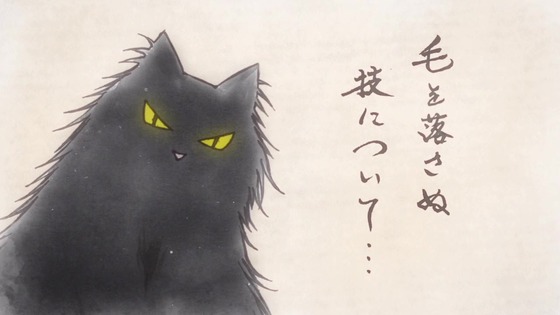 毛を落さぬ
技について…